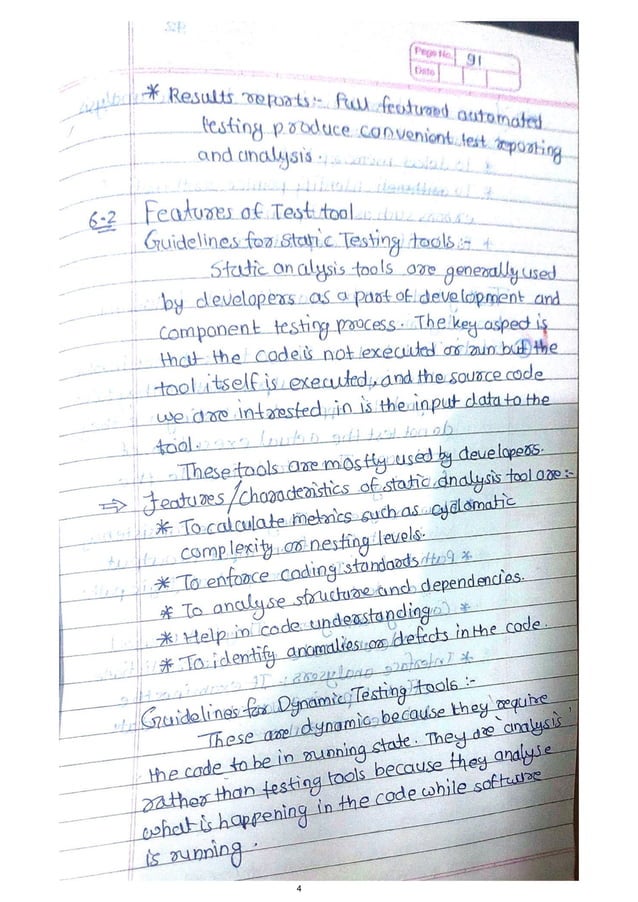 Page No. 91
Date
* Results reports:- Full featured automated
testing produce convenient test reporting
and analysis.
6.2 Features of Test tool
Guidelines for Static Testing tools:-
Static analysis tools are generally used
by developers as a part of development and
component testing process. The key aspect is
that the code is not executed or run but the
tool itself is executed, and the source code
we are intrested in is the input data to the
tool.
These tools are mostly used by developers.
⇒ Features/characteristics of static analysis tool are:-
* To calculate metrics such as cyclomatic
complexity or nesting levels.
* To enforce coding standards
* To analyse structure and dependencies.
* Help in code understanding
* To identify anomalies or defects in the code.
Guidelines for Dynamic Testing tools:-
These are dynamic because they require
the code to be in running state. They are 'analysis'
rather than testing tools because they analyse
what is happening in the code while software
is running.
4